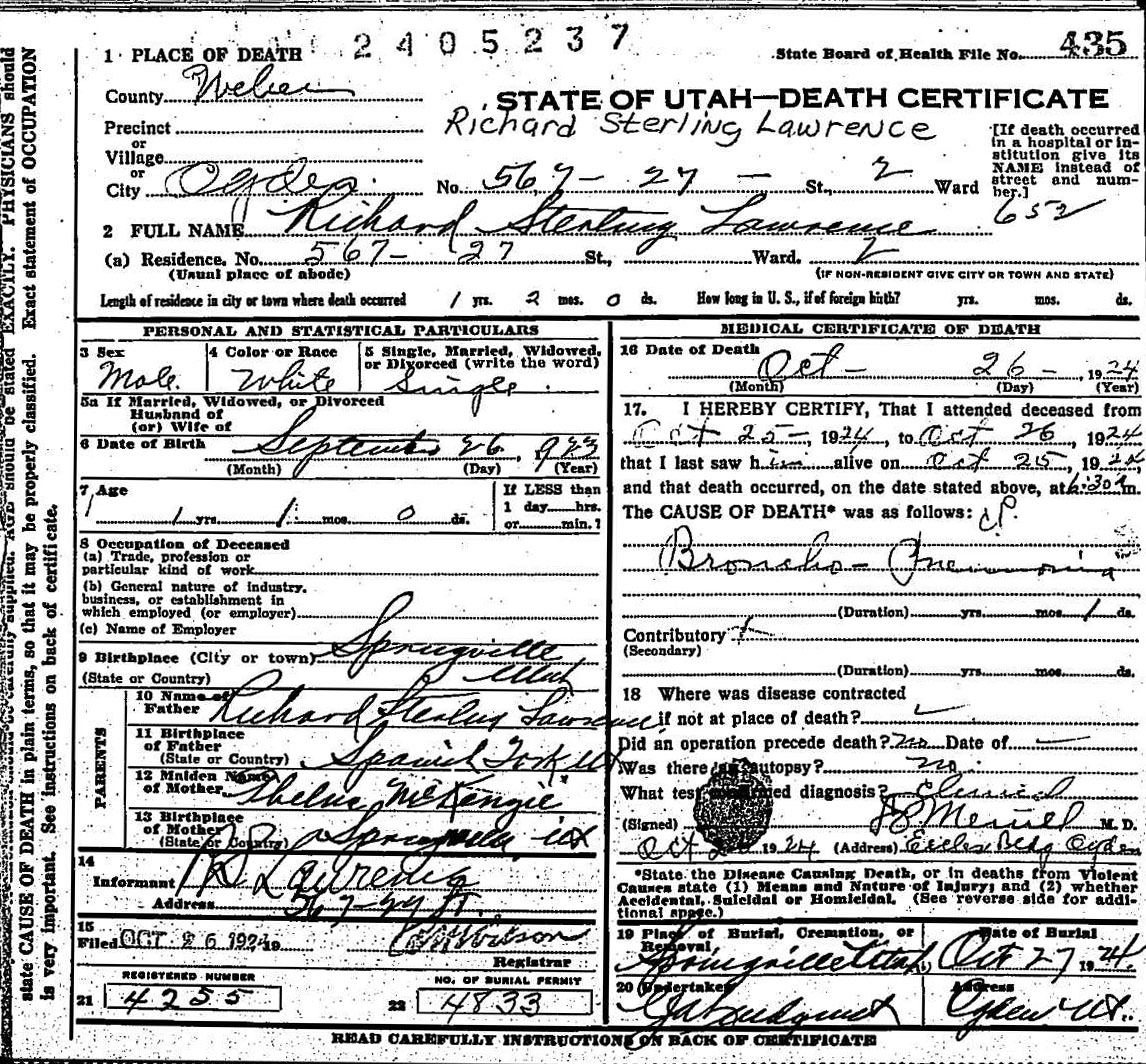 2405237
State Board of Health File No. 435
1 PLACE OF DEATH
County Weber
STATE OF UTAH—DEATH CERTIFICATE
Precinct
Richard Sterling Lawrence
or
Village
or
City Ogden No. 567- 27 - St., 2 Ward
[If death occurred
in a hospital or in-
stitution give its
NAME instead of
street and num-
ber.]
652
2 FULL NAME Richard Sterling Lawrence
(a) Residence. No. 567- 27 St., Ward. 2
(Usual place of abode) (IF NON-RESIDENT GIVE CITY OR TOWN AND STATE)
Length of residence in city or town where death occurred 1 yrs. 2 mos. 0 ds. How long in U. S., if of foreign birth? yrs. mos. ds.
PERSONAL AND STATISTICAL PARTICULARS
3 Sex 4 Color or Race 5 Single, Married, Widowed,
or Divorced (write the word)
Male. White Single.
5a If Married, Widowed, or Divorced
Husband of
(or) Wife of
6 Date of Birth September 26, 1923
(Month) (Day) (Year)
7 Age
1 yrs. 1 mos. 0 ds.
If LESS than
1 day hrs.
or min.?
8 Occupation of Deceased
(a) Trade, profession or
particular kind of work
(b) General nature of industry,
business, or establishment in
which employed (or employer)
(c) Name of Employer
9 Birthplace (City or town) Springville
(State or Country) Utah
PARENTS
10 Name of
Father Richard Sterling Lawrence
11 Birthplace
of Father
(State or Country) Spanish Fork Ut
12 Maiden Name
of Mother Thelma McKenzie
13 Birthplace
of Mother
(State or Country) Springville Ut
14
Informant R S Lawrence
Address 567-27 St.
15
Filed OCT 26 1924 19
Registrar
REGISTERED NUMBER
21 4255
NO. OF BURIAL PERMIT
22 4833
MEDICAL CERTIFICATE OF DEATH
16 Date of Death Oct- 26-, 1924
(Month) (Day) (Year)
17. I HEREBY CERTIFY, That I attended deceased from
Oct 25-, 1924, to Oct 26, 1924
that I last saw him alive on Oct 25, 1924,
and that death occurred, on the date stated above, at 6:30 m.
The CAUSE OF DEATH* was as follows:
Broncho-Pneumonia
(Duration) yrs. mos. 1 ds.
Contributory
(Secondary)
(Duration) yrs. mos. ds.
18 Where was disease contracted
if not at place of death?
Did an operation precede death? no Date of -
Was there an autopsy? no.
What test confirmed diagnosis? Clinical
(Signed) Merrill M. D.
Oct 1924 (Address) Eccles Bldg Ogden
*State the Disease Causing Death, or in deaths from Violent
Causes state (1) Means and Nature of Injury; and (2) whether
Accidental, Suicidal or Homicidal. (See reverse side for addi-
tional space.)
19 Place of Burial, Cremation, or Date of Burial
Removal,
Springville Utah Oct 27 1924.
20 Undertaker Address
Ogden Ut.
READ CAREFULLY INSTRUCTIONS ON BACK OF CERTIFICATE
PHYSICIANS should
state CAUSE OF DEATH in plain terms, so that it may be properly classified. Exact statement of OCCUPATION
is very important. See instructions on back of certificate.